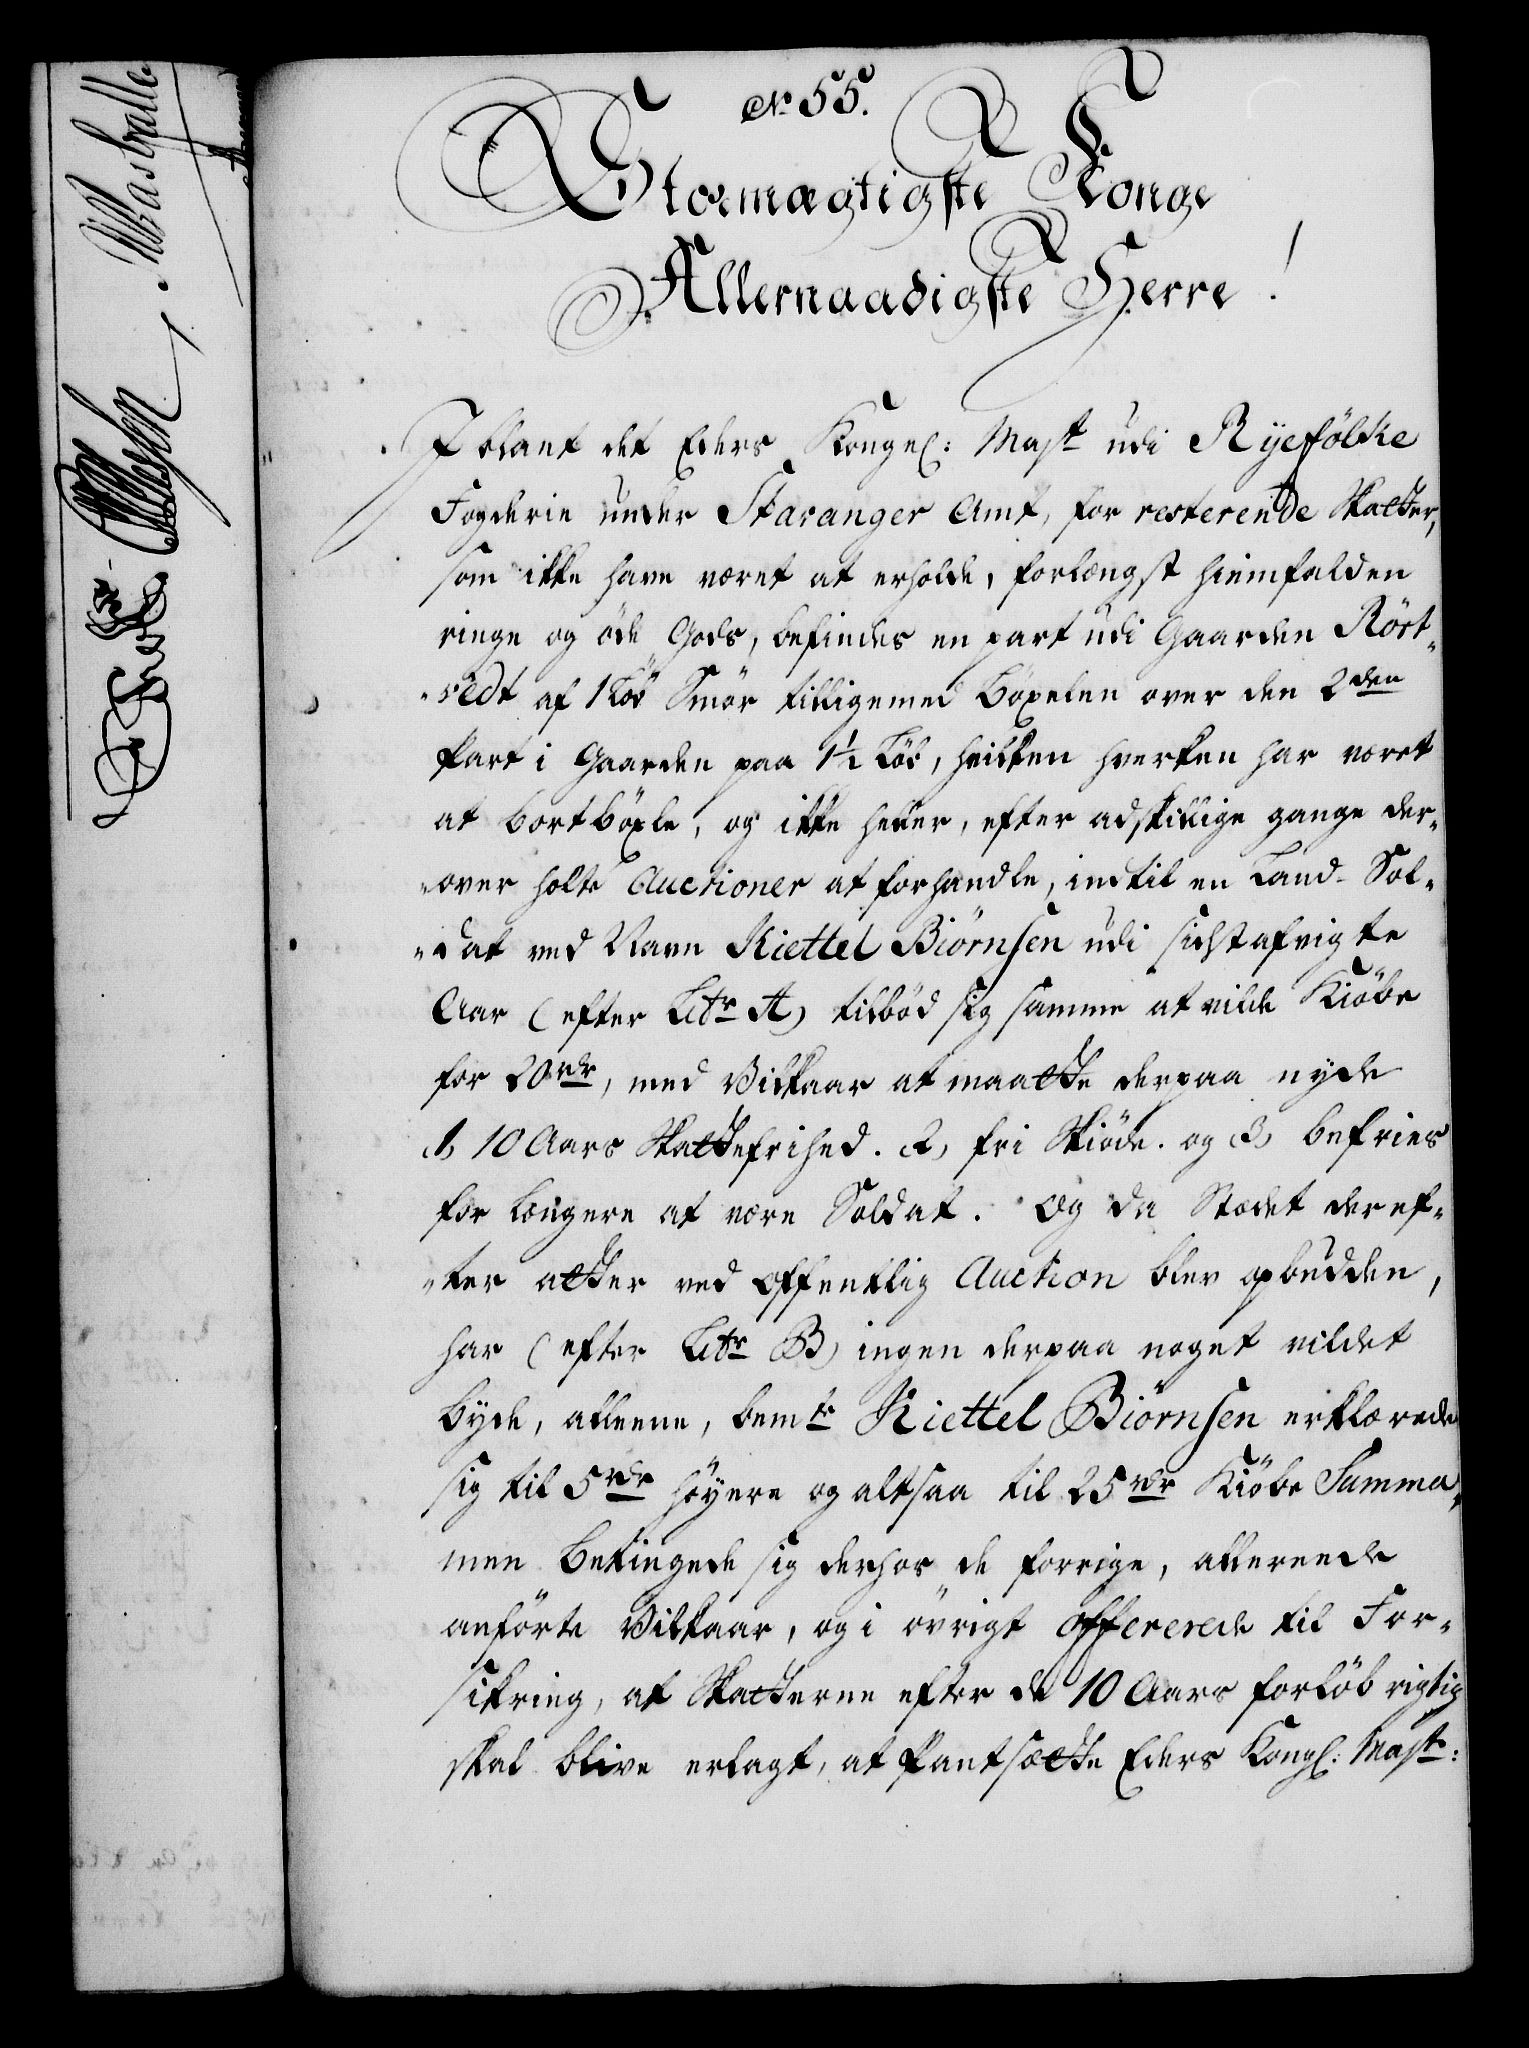 No 55.
Stormægtigste Konge
Allernaadigste Herre!
I blant det Eders Kongel: Majst udi Ryefölke
Fogderie under Stavanger Amt, for resterende Skatter,
som ikke have været at erholde, forlængst hiemfalden
ringe og öde Gods, befindes en part udi Gaarden Rört-
-vedt af 1 Löb Smör tilligemed Böxelen over den 2den
Part i Gaarden paa 1½ Löb, hvilken hverken har været
at bortböxle, og ikke heller, efter adskillige gange der-
-over holte Auctioner at forhandle, indtil en Land-Sol-
-dat ved Navn Kiettel Biörnsen udi sidstafvigte
Aar (efter Litr A) tilböd sig samme at vilde Kiöbe
for 20rdr, med Vilkaar at maatte derpaa nyde
1, 10 Aars Skattefrihed. 2, fri Skiöde. og 3, befries
for længere at være Soldat. Og da Stædet deref-
-ter atter ved offentlig Auction blev opbudden,
har (efter Litr B) ingen derpaa noget vildet
byde, alleene, bemte Kiettel Biörnsen erklærede
sig til 5rdr höyere og altsaa til 25rdr Kiöbe Summa,
men betingede sig derhos de forrige, allereede
anförte Vilkaar, og i övrigt offererede til For-
sikring, at Skatterne efter de 10 Aars forlöb rigtig
skal blive erlagt, at Pantsætte Eders Kongl: Majst: